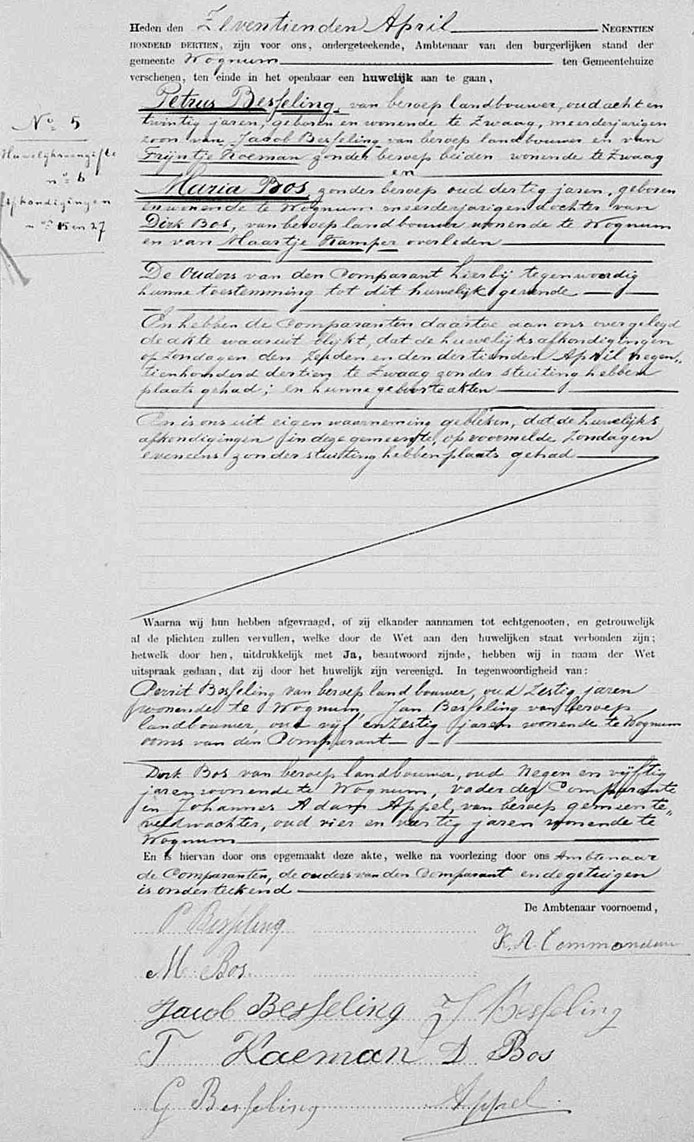 Heden den Zeventienden April NEGENTIEN
HONDERD DERTIEN, zijn voor ons, ondergeteekende, Ambtenaar van den burgerlijken stand der
gemeente Wognum ten Gemeentehuize
verschenen, ten einde in het openbaar een huwelijk aan te gaan,
Petrus Besseling, van beroep landbouwer, oud acht en
twintig jaren, geboren en wonende te Zwaag, meerderjarigen
zoon van Jacob Besseling van beroep landbouwer en van
Trijntje Koeman zonder beroep beiden wonende te Zwaag
en
No 5
Huwelijksaangifte
no 6
afkondigingen
no 15 en 27
Maria Bos, zonder beroep oud dertig jaren, geboren
en wonende te Wognum meerderjarigen dochter van
Dirk Bos, van beroep landbouwer wonende te Wognum
en van Maartje Kamper overleden
De Ouders van den Comparant hierbij tegenwoordig
hunne toestemming tot dit huwelijk gevende
En hebben de Comparanten daartoe aan ons overgelegd
de akte waaruit blijkt, dat de huwelijksafkondigingen
op Zondagen den Zesden en den dertienden April negen-
tienhonderd dertien te Zwaag zonder stuiting hebben
plaats gehad; en hunne geboorteakten
En is ons uit eigen waarneming gebleken, dat de huwelijks
afkondigingen in deze gemeente, op voormelde Zondagen
eveneens zonder stuiting hebben plaats gehad
Waarna wij hun hebben afgevraagd, of zij elkander aannamen tot echtgenooten, en getrouwelijk
al de plichten zullen vervullen, welke door de Wet aan den huwelijken staat verbonden zijn;
hetwelk door hen, uitdrukkelijk met Ja, beantwoord zijnde, hebben wij in naam der Wet
uitspraak gedaan, dat zij door het huwelijk zijn vereenigd. In tegenwoordigheid van:
Gerrit Besseling van beroep landbouwer, oud Zestig jaren
wonende te Wognum, Jan Besseling van beroep
landbouwer, oud vijf en Zestig jaren wonende te Wognum
ooms van den Comparant
Dirk Bos van beroep landbouwer, oud Negen en vijftig
jaren wonende te Wognum, vader der Comparante
en Johannes Adam Appel, van beroep gemeente-
veldwachter, oud vier en veertig jaren wonende te
Wognum
En is hiervan door ons opgemaakt deze akte, welke na voorlezing door ons Ambtenaar
de Comparanten, de ouders van den Comparant en de getuigen
is onderteekend
De Ambtenaar voornoemd,
P. Besseling
K. A. Commandeur
M. Bos
Jacob Besseling J Besseling
T Koeman D Bos
G Besseling Appel